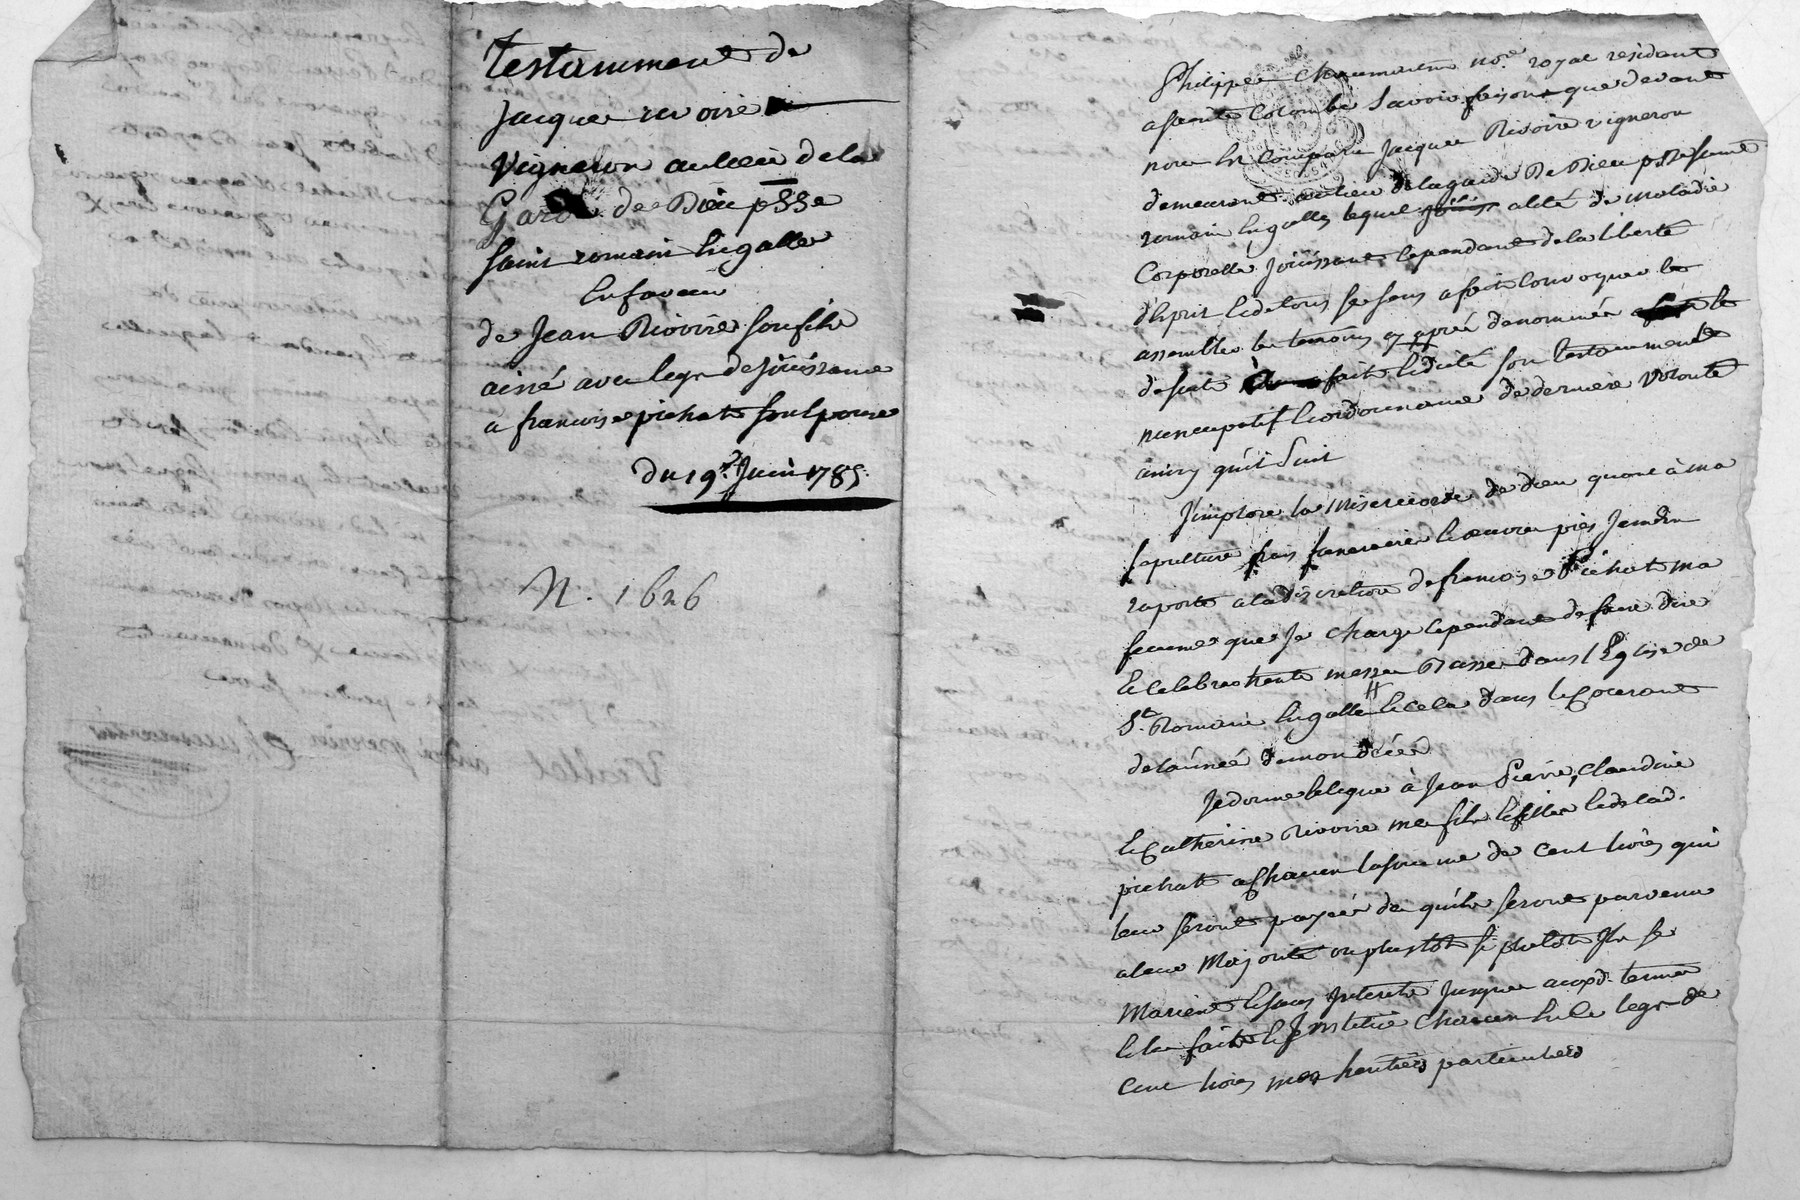 testamment de
Jacque revoire
vigneron au lieu de la
Garde de Dieu psse
saint romain Engalle
En faveur
de Jean Rivoire son fils
ainé avec legs de jouissance
a francoise pichat son Epouse
du 19e Juin 1785
N. 1626
Philippe Chaumartin nore royal résidant
a sainte Colombe savoir faisons que devant
nous En Comparu Jacque Rivoire vigneron
demeurant au lieu de la garde De Dieu psse saint
romain Engalles lequel alité de maladie
Corporelle Jouissant Cependant de la liberté
d'Esprit Et de tous ses sens a fait Convoquer Et
assembler les temoins cy après denommés
de suite fait Et dicté son testamment
nuncupatif Et ordonnance de derniere volonté
ainsy qu'il Suit
J'implore la Misericorde de dieu quant à ma
sepulture frais funeraires Et œuvres pies Je m'En
raporte a la discretion de francoise Pichat ma
femme que Je Charge Cependant de faire dire
Et Celebrer trente messes Basses dans l'Eglise de
St. Romain Engalle Et Cela dans Le Courant
de l'année de mon décés
Je donne Et legue à Jean Pierre, Claudine
Et Catherine Rivoire mes fils Et filles Et de lad.
pichat a Chacun la somme de Cent livres qui
leur seront payées des qu'ils seront parvenu
a leur Majorité ou plustot si plutôt Ils se
Marient Et sans Interets Jusques auxd. termes
Et les fait Et Institue Chacun En Ce legs de
Cent livres mes heritiers particuliers